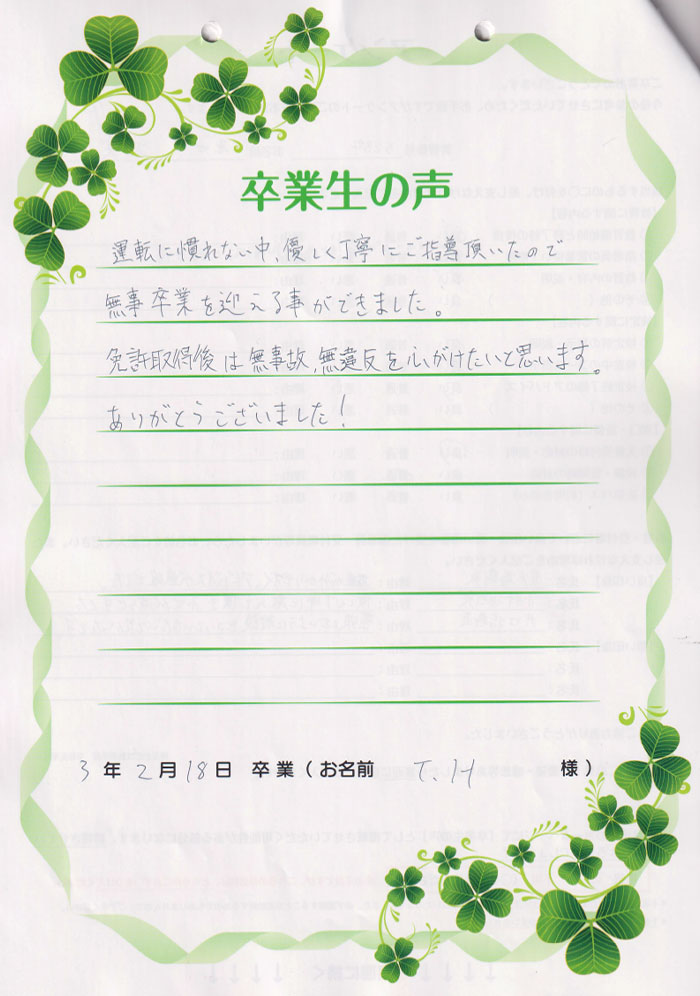 卒業生の声
運転に慣れない中、優しく丁寧にご指導頂いたので
無事卒業を迎える事ができました。
免許取得後は無事故、無違反を心がけたいと思います。
ありがとうございました!
3年2月18日 卒業(お名前 T.H 様)